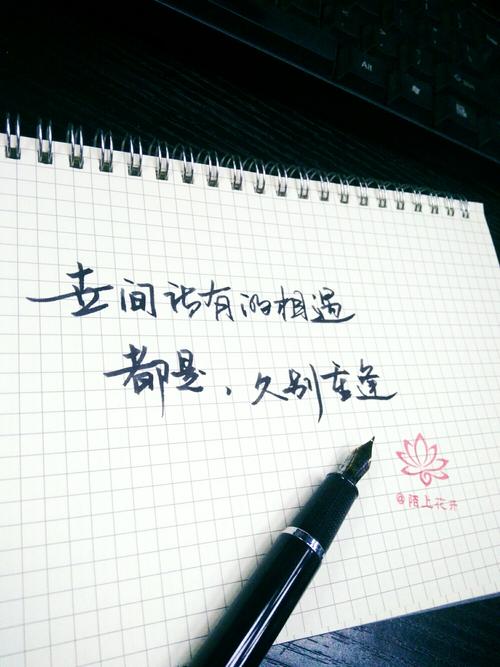 世间所有的相遇
都是，久别重逢
@陌上花开
Alt